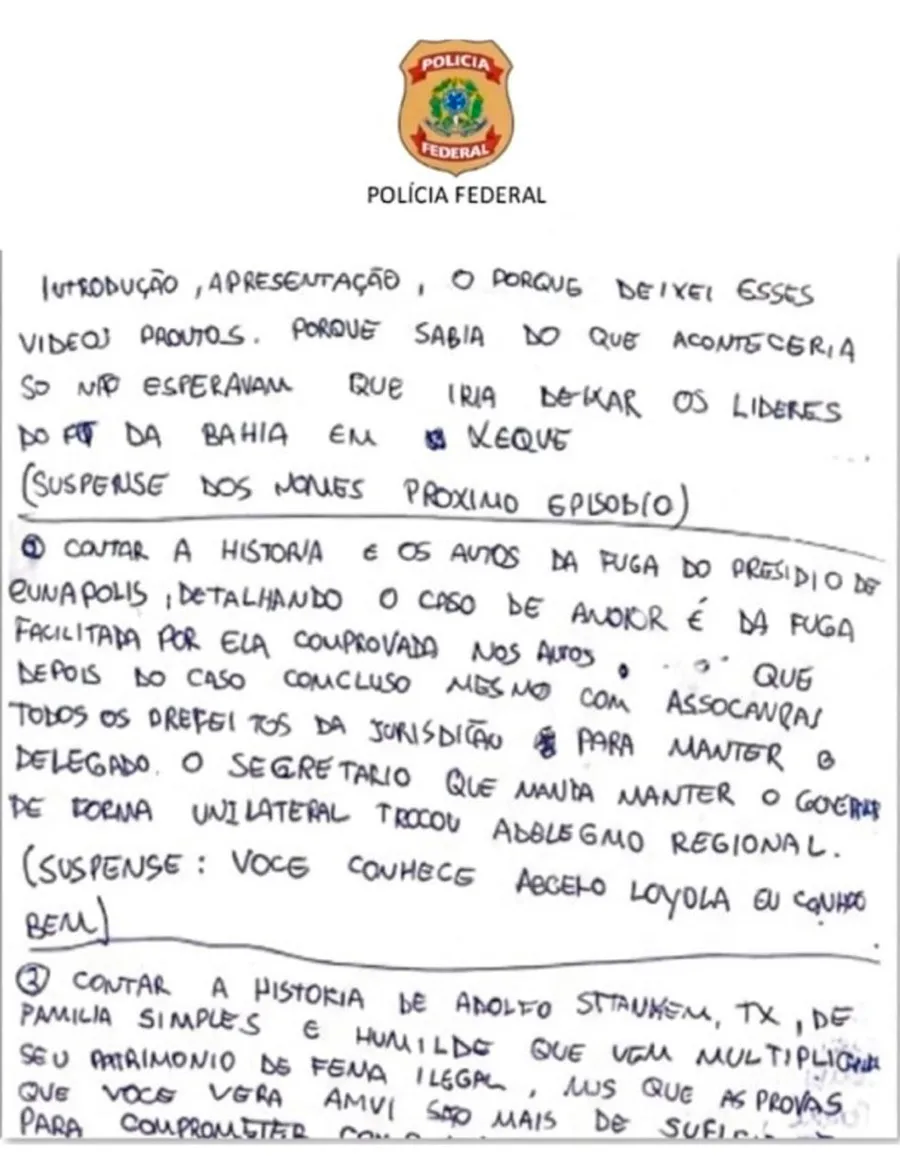 POLICIA
FEDERAL
POLÍCIA FEDERAL
INTRODUÇÃO, APRESENTAÇÃO, O PORQUE DEIXEI ESSES
VIDEOS PRONTOS. PORQUE SABIA DO QUE ACONTECERIA
SO NÃO ESPERAVAM QUE IRIA DEIXAR OS LIDERES
DO PT DA BAHIA EM XEQUE
(SUSPENSE DOS NOMES PROXIMO EPISODIO)
① CONTAR A HISTORIA E OS AUTOS DA FUGA DO PRESIDIO DE
EUNAPOLIS, DETALHANDO O CASO DE É DA FUGA
FACILITADA POR ELA COMPROVADA NOS AUTOS QUE
DEPOIS DO CASO CONCLUSO MESMO COM
TODOS OS PREFEITOS DA JURISDIÇÃO PARA MANTER O
DELEGADO. O SEGRETARIO QUE MANDA MANTER O
DE FORMA UNILATERAL TROCOU REGIONAL.
(SUSPENSE: VOCE CONHECE LOYOLA EU
BEM)
② CONTAR A HISTORIA DE ADOLFO, TX, DE
FAMILIA SIMPLES E HUMILDE QUE VEM
SEU PATRIMONIO DE ILEGAL, QUE AS PROVAS
QUE VOCE VERA SÃO MAIS DE
PARA COMPROMETER